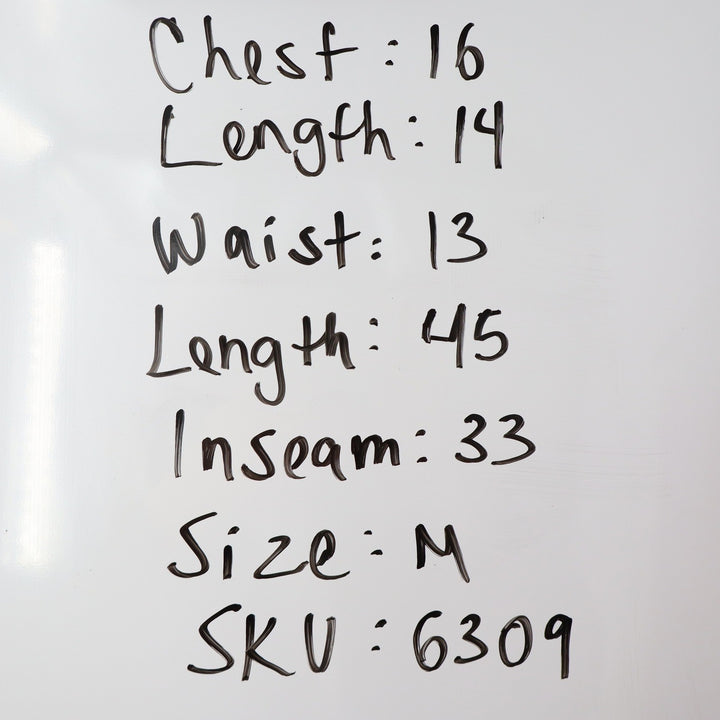 Chest: 16
Length: 14
Waist: 13
Length: 45
Inseam: 33
Size: M
SKU: 6309